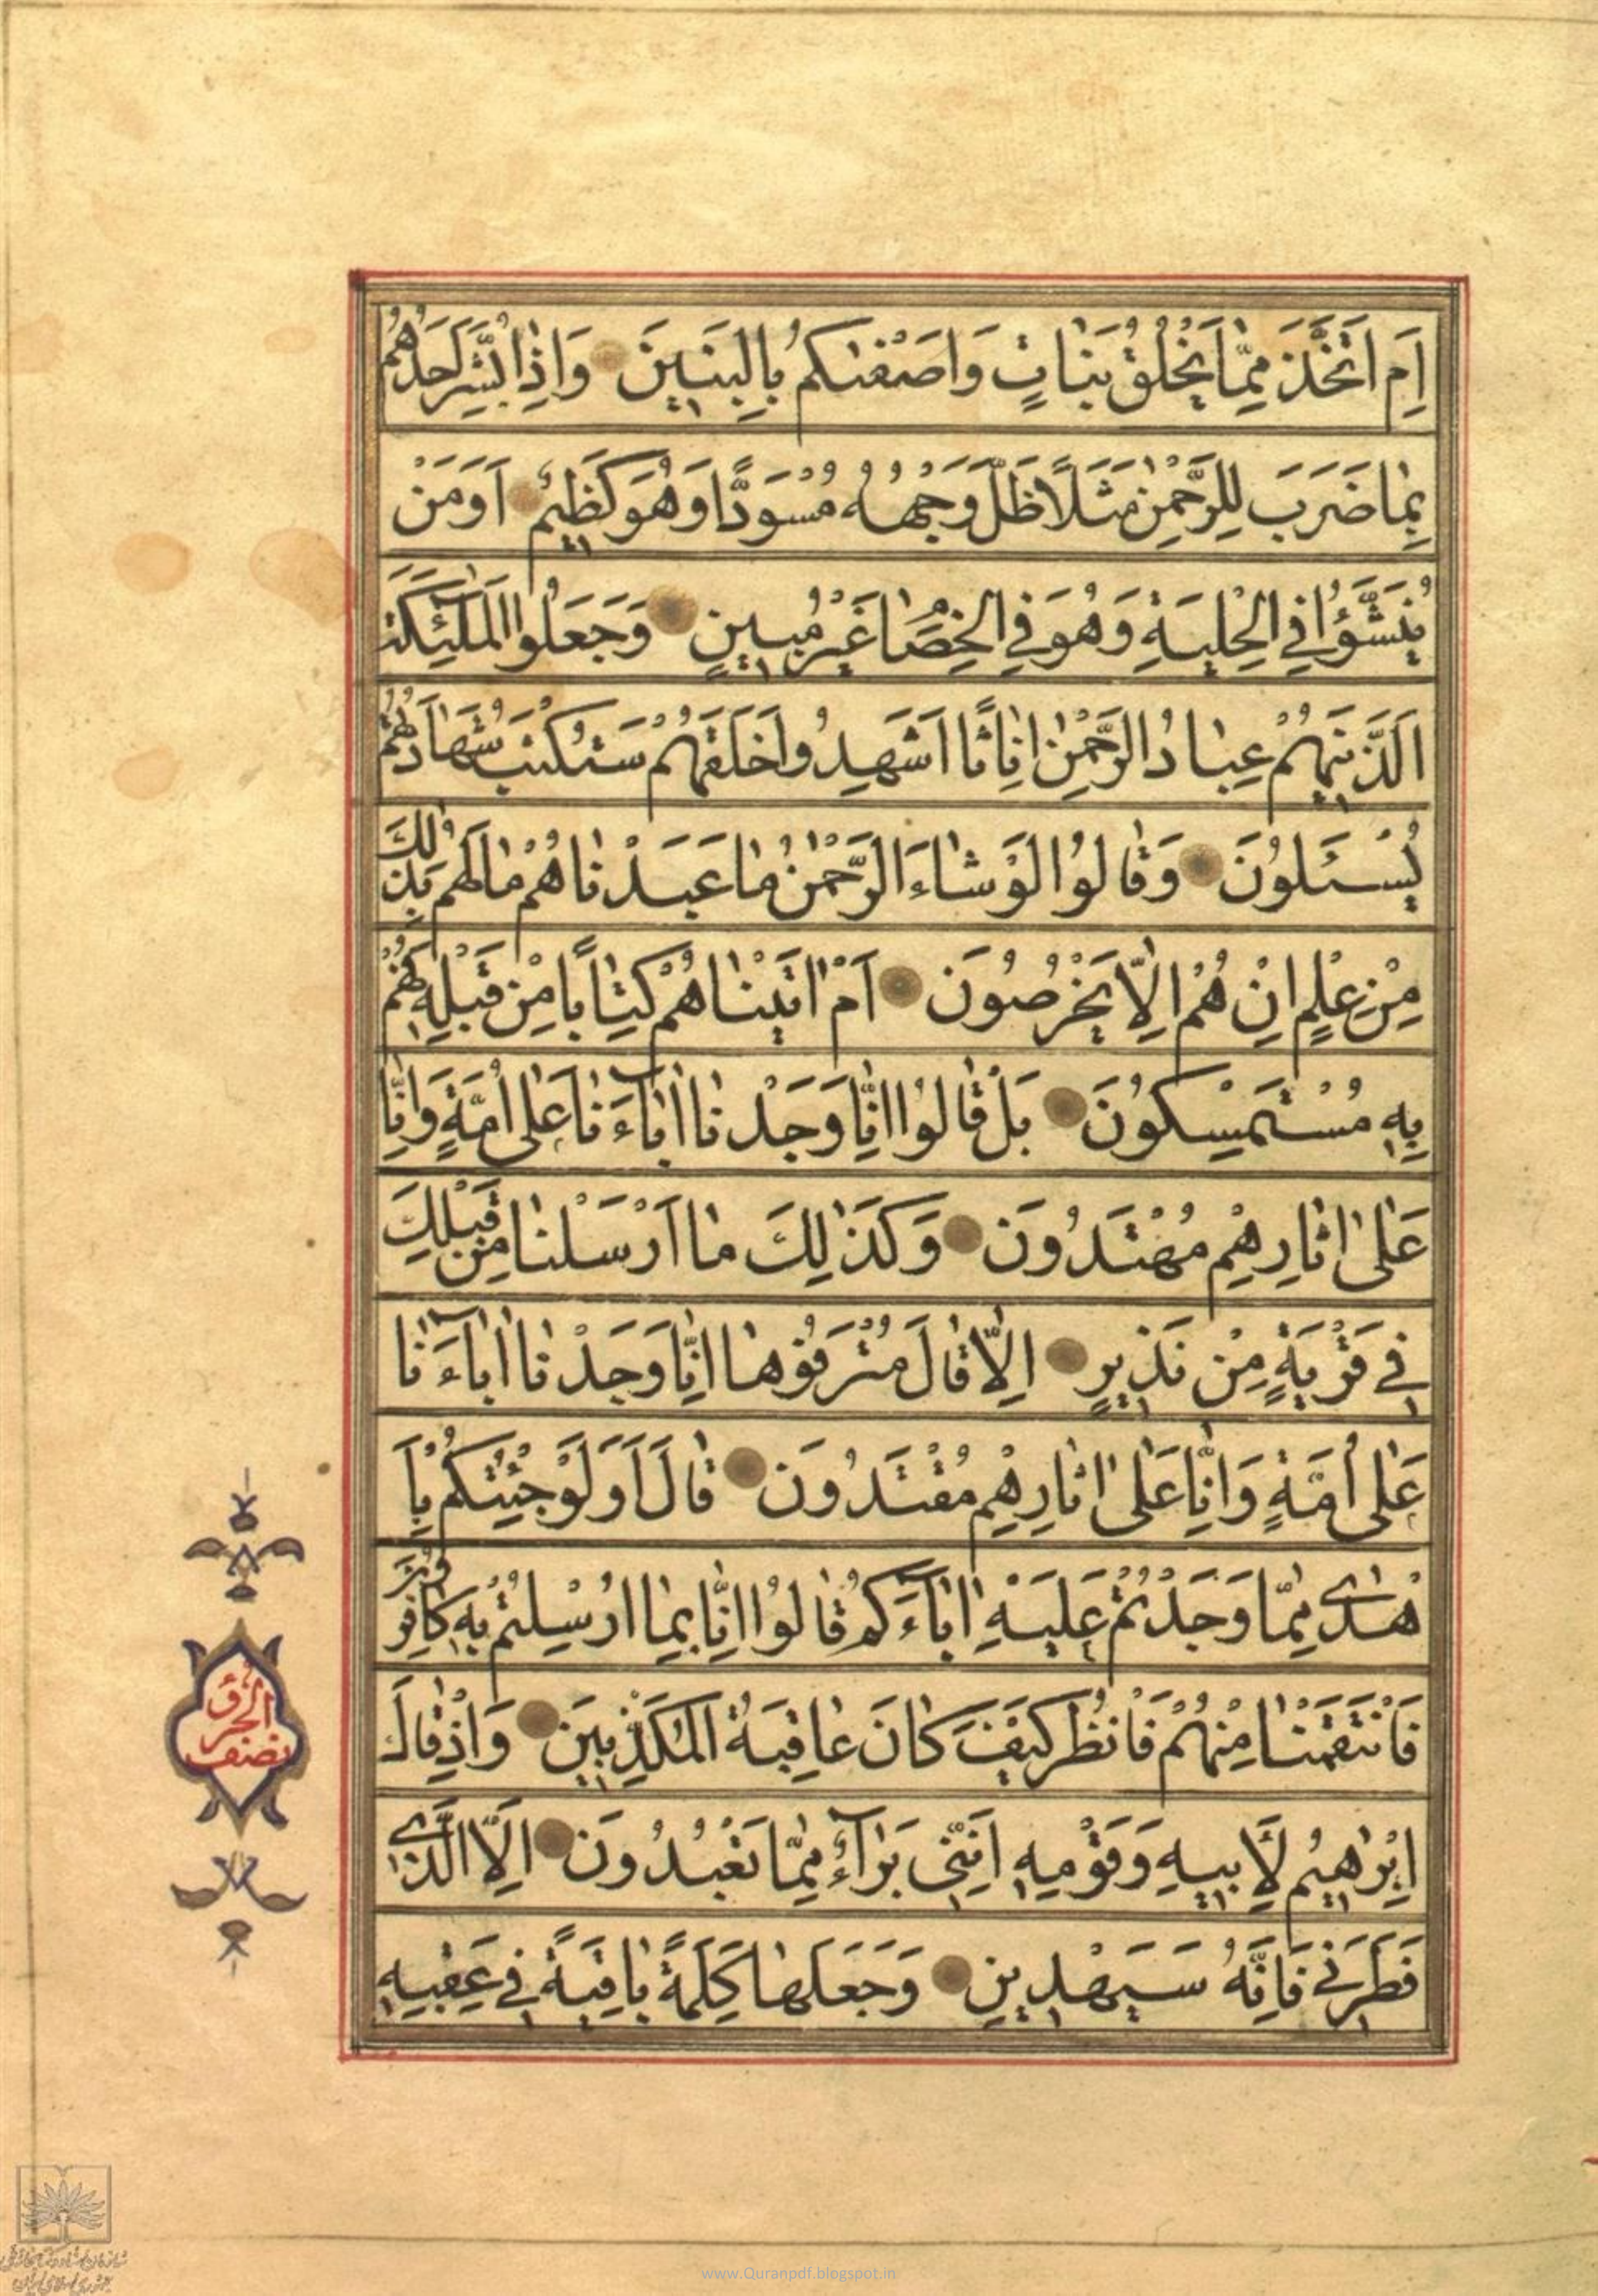 اَمِ اتَّخَذَ مِمَّا يَخْلُقُ بَنَاتٍ وَاَصْفٰىكُمْ بِالْبَنٖينَ وَاِذَا بُشِّرَ اَحَدُهُمْ
بِمَا ضَرَبَ لِلرَّحْمٰنِ مَثَلًا ظَلَّ وَجْهُهُ مُسْوَدًّا وَهُوَ كَظٖيمٌ اَوَمَنْ
يُنَشَّؤُا فِي الْحِلْيَةِ وَهُوَ فِي الْخِصَامِ غَيْرُ مُبٖينٍ وَجَعَلُوا الْمَلٰٓئِكَةَ
الَّذٖينَ هُمْ عِبَادُ الرَّحْمٰنِ اِنَاثًا اَشَهِدُوا خَلْقَهُمْ سَتُكْتَبُ شَهَادَتُهُمْ
يُسْـَٔلُونَ وَقَالُوا لَوْ شَاءَ الرَّحْمٰنُ مَا عَبَدْنَاهُمْ مَا لَهُمْ بِذٰلِكَ
مِنْ عِلْمٍ اِنْ هُمْ اِلَّا يَخْرُصُونَ اَمْ اٰتَيْنَاهُمْ كِتَابًا مِنْ قَبْلِهٖ فَهُمْ
بِهٖ مُسْتَمْسِكُونَ بَلْ قَالُوا اِنَّا وَجَدْنَا اٰبَآءَنَا عَلٰى اُمَّةٍ وَاِنَّا
عَلٰى اٰثَارِهِمْ مُهْتَدُونَ وَكَذٰلِكَ مَا اَرْسَلْنَا مِنْ قَبْلِكَ
فٖي قَرْيَةٍ مِنْ نَذٖيرٍ اِلَّا قَالَ مُتْرَفُوهَا اِنَّا وَجَدْنَا اٰبَآءَنَا
عَلٰى اُمَّةٍ وَاِنَّا عَلٰى اٰثَارِهِمْ مُقْتَدُونَ قَالَ اَوَلَوْ جِئْتُكُمْ بِاَ
هْدٰى مِمَّا وَجَدْتُمْ عَلَيْهِ اٰبَآءَكُمْ قَالُوا اِنَّا بِمَا اُرْسِلْتُمْ بِهٖ كَافِرُونَ
فَانْتَقَمْنَا مِنْهُمْ فَانْظُرْ كَيْفَ كَانَ عَاقِبَةُ الْمُكَذِّبٖينَ وَاِذْ قَالَ
اِبْرٰهٖيمُ لِاَبٖيهِ وَقَوْمِهٖ اِنَّنٖي بَرَآءٌ مِمَّا تَعْبُدُونَ اِلَّا الَّذٖي
فَطَرَنٖي فَاِنَّهُ سَيَهْدٖينِ وَجَعَلَهَا كَلِمَةً بَاقِيَةً فٖي عَقِبِهٖ
نصف
الحزب
www.Quranpdf.blogspot.in